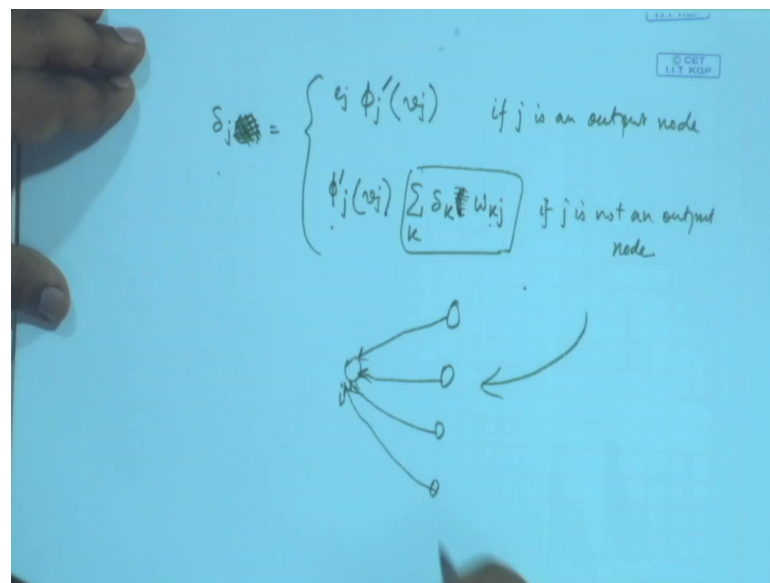 © CET
I.I.T KGP
δj = { ej ϕj′(vj) if j is an output node
ϕ′j(vj) ∑K δK WKj if j is not an output
node.
j